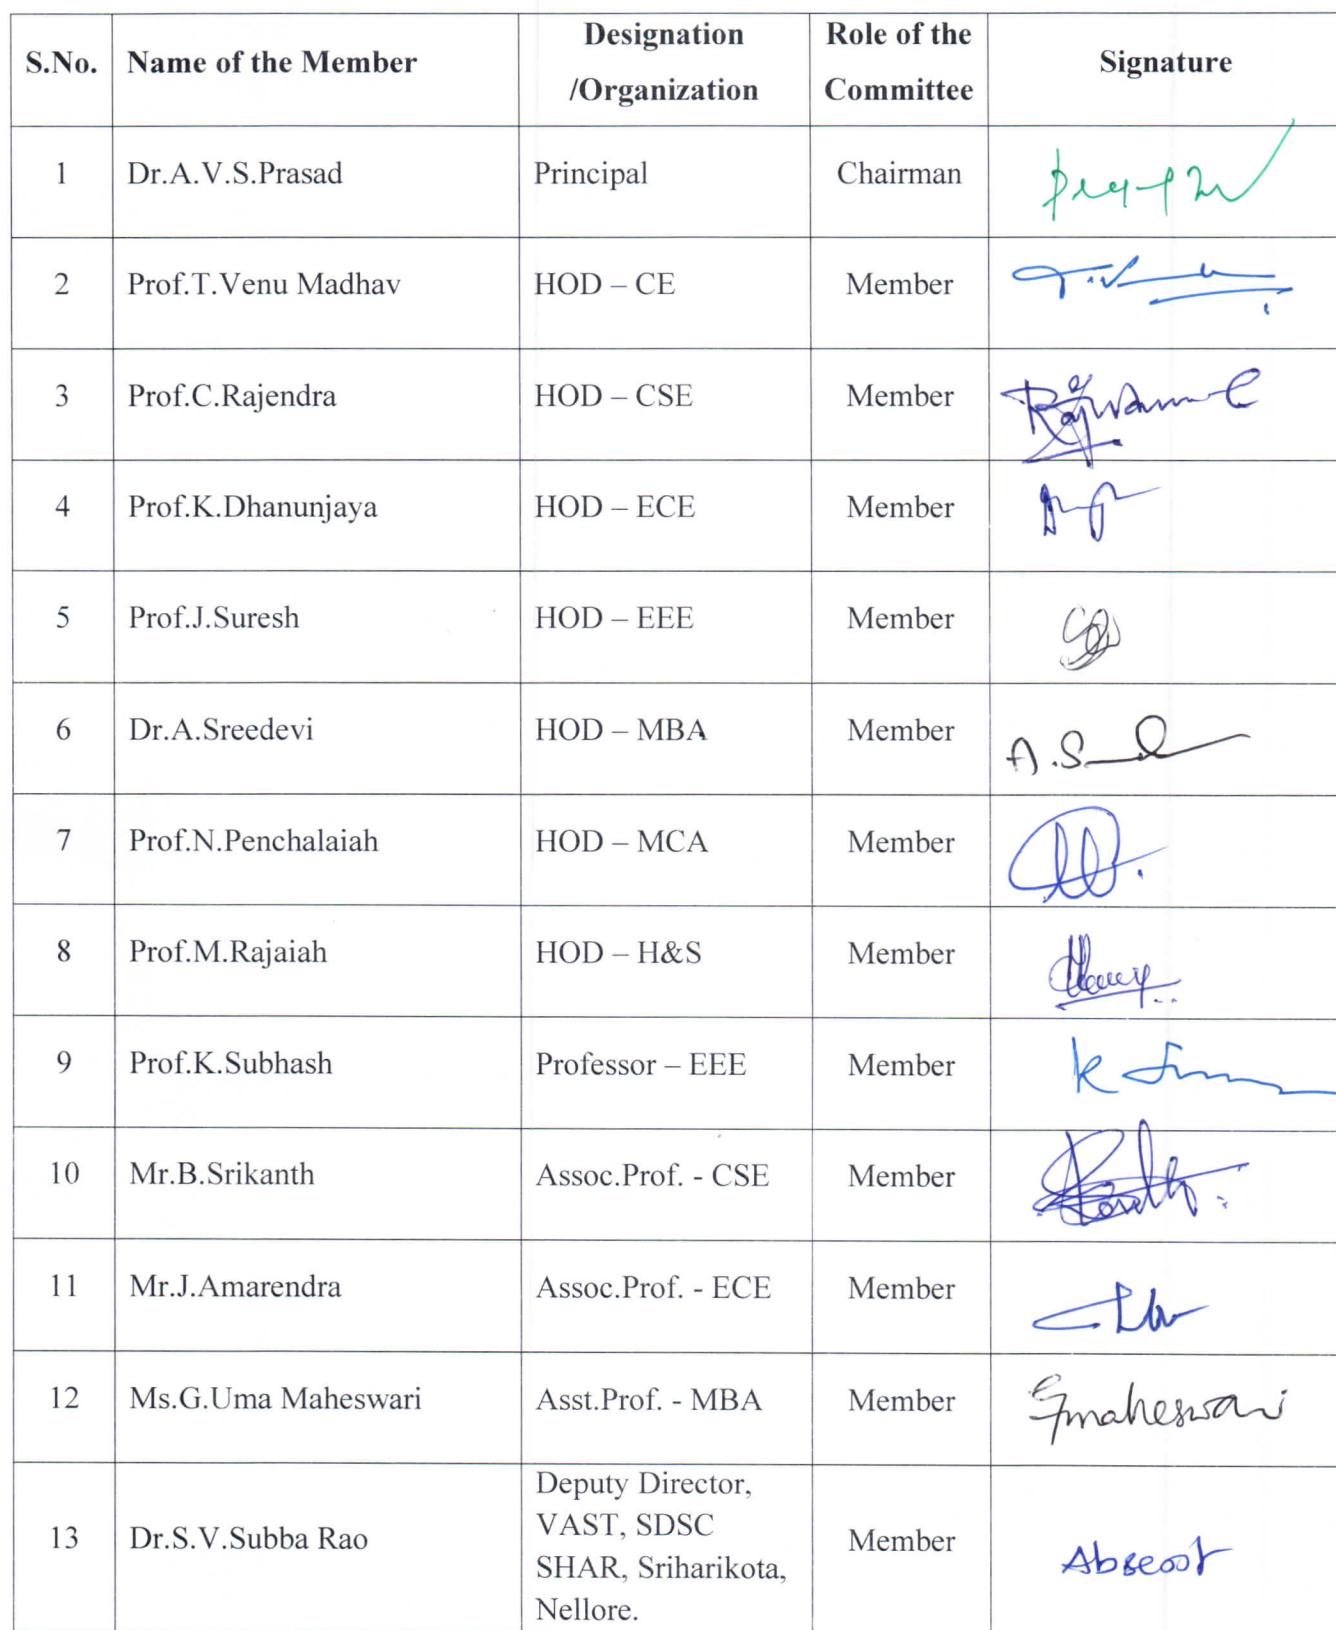 S.No. Name of the Member Designation /Organization Role of the Committee Signature
1 Dr.A.V.S.Prasad Principal Chairman
2 Prof.T.Venu Madhav HOD – CE Member
3 Prof.C.Rajendra HOD – CSE Member
4 Prof.K.Dhanunjaya HOD – ECE Member
5 Prof.J.Suresh HOD – EEE Member
6 Dr.A.Sreedevi HOD – MBA Member
7 Prof.N.Penchalaiah HOD – MCA Member
8 Prof.M.Rajaiah HOD – H&S Member
9 Prof.K.Subhash Professor – EEE Member
10 Mr.B.Srikanth Assoc.Prof. - CSE Member
11 Mr.J.Amarendra Assoc.Prof. - ECE Member
12 Ms.G.Uma Maheswari Asst.Prof. - MBA Member
13 Dr.S.V.Subba Rao Deputy Director, VAST, SDSC SHAR, Sriharikota, Nellore. Member Absent